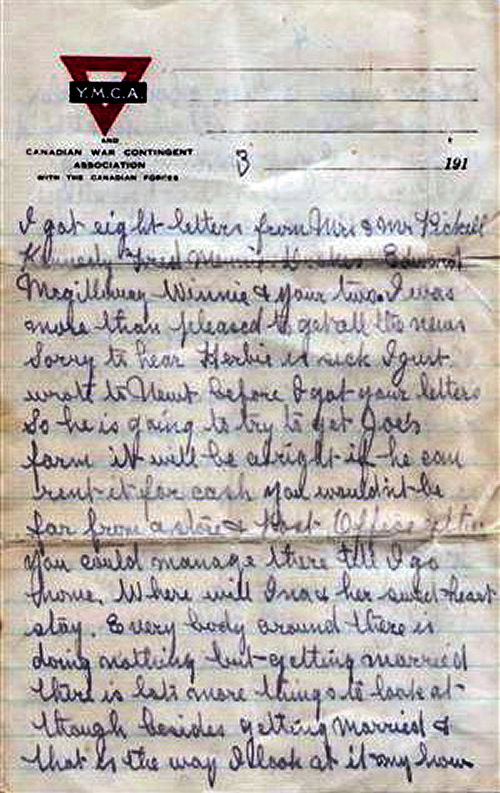 Y.M.C.A.
AND
CANADIAN WAR CONTINGENT
ASSOCIATION
WITH THE CANADIAN FORCES
3
191
I got eight letters from Mrs & Mr Pickell
Kennedy Fred Edward
Mcgillaway Winnie & your two. I was
more than pleased to get all the news
Sorry to hear Herbie is sick I just
wrote to Newt before I got your letters
So he is going to try to get Joe's
farm it will be alright if he can
rent it for cash you wouldn't be
far from a store & Post Office
you could manage there till I go
home. Where will Ina & her sweet-heart
stay. Every body around there is
doing nothing but getting married
there is lots more things to look at
though besides getting married &
that is the way I look at it my how